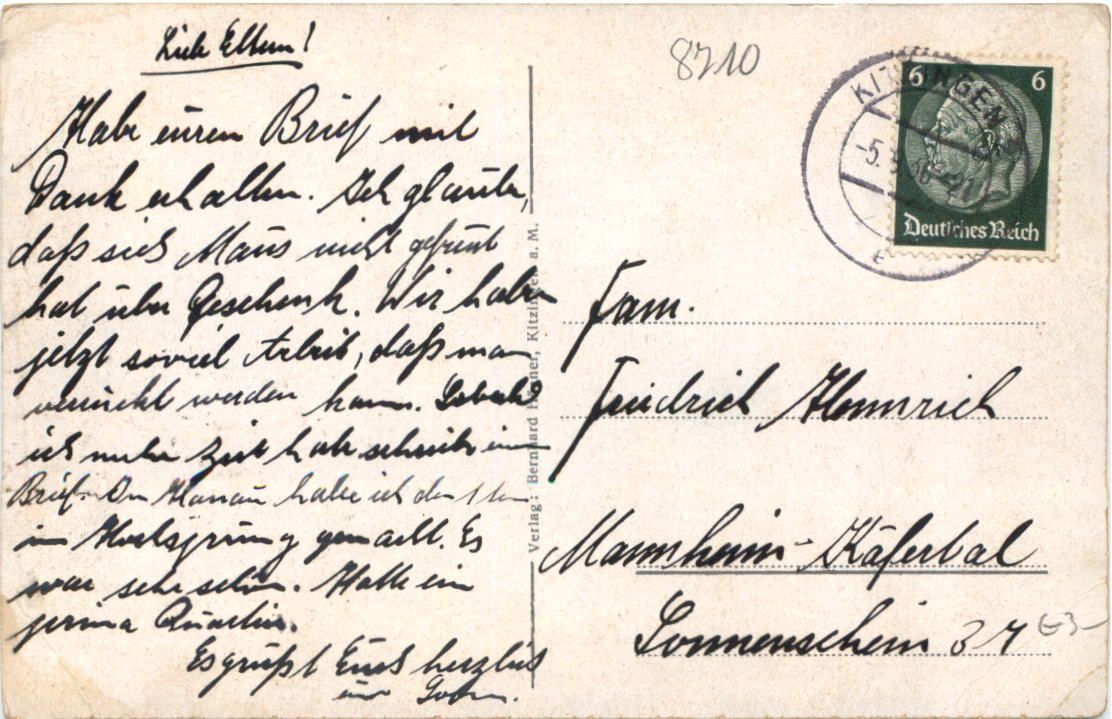 Liebe Eltern!
Habe euren Brief mit
Dank erhalten. Ich glaube,
daß sich Maus nicht gefreut
hat über Geschenk. Wir haben
jetzt soviel Arbeit, daß man
verrückt werden kann. Sobald
ich mehr Zeit habe schreibe ein
Brief. In Hanau habe ich den
im Hochsprung gemacht. Es
war sehr schön. Hatte ein
prima Quartier.
Es grüßt Euch herzlich
euer Sohn.
Verlag: Bernhard Kitzingen a. M.
8710
KITZINGEN
-5. 36 -21
6 6
Deutsches Reich
Fam.
Friedrich Hemmrich
Mannheim-Käfertal
Sonnenschein 37